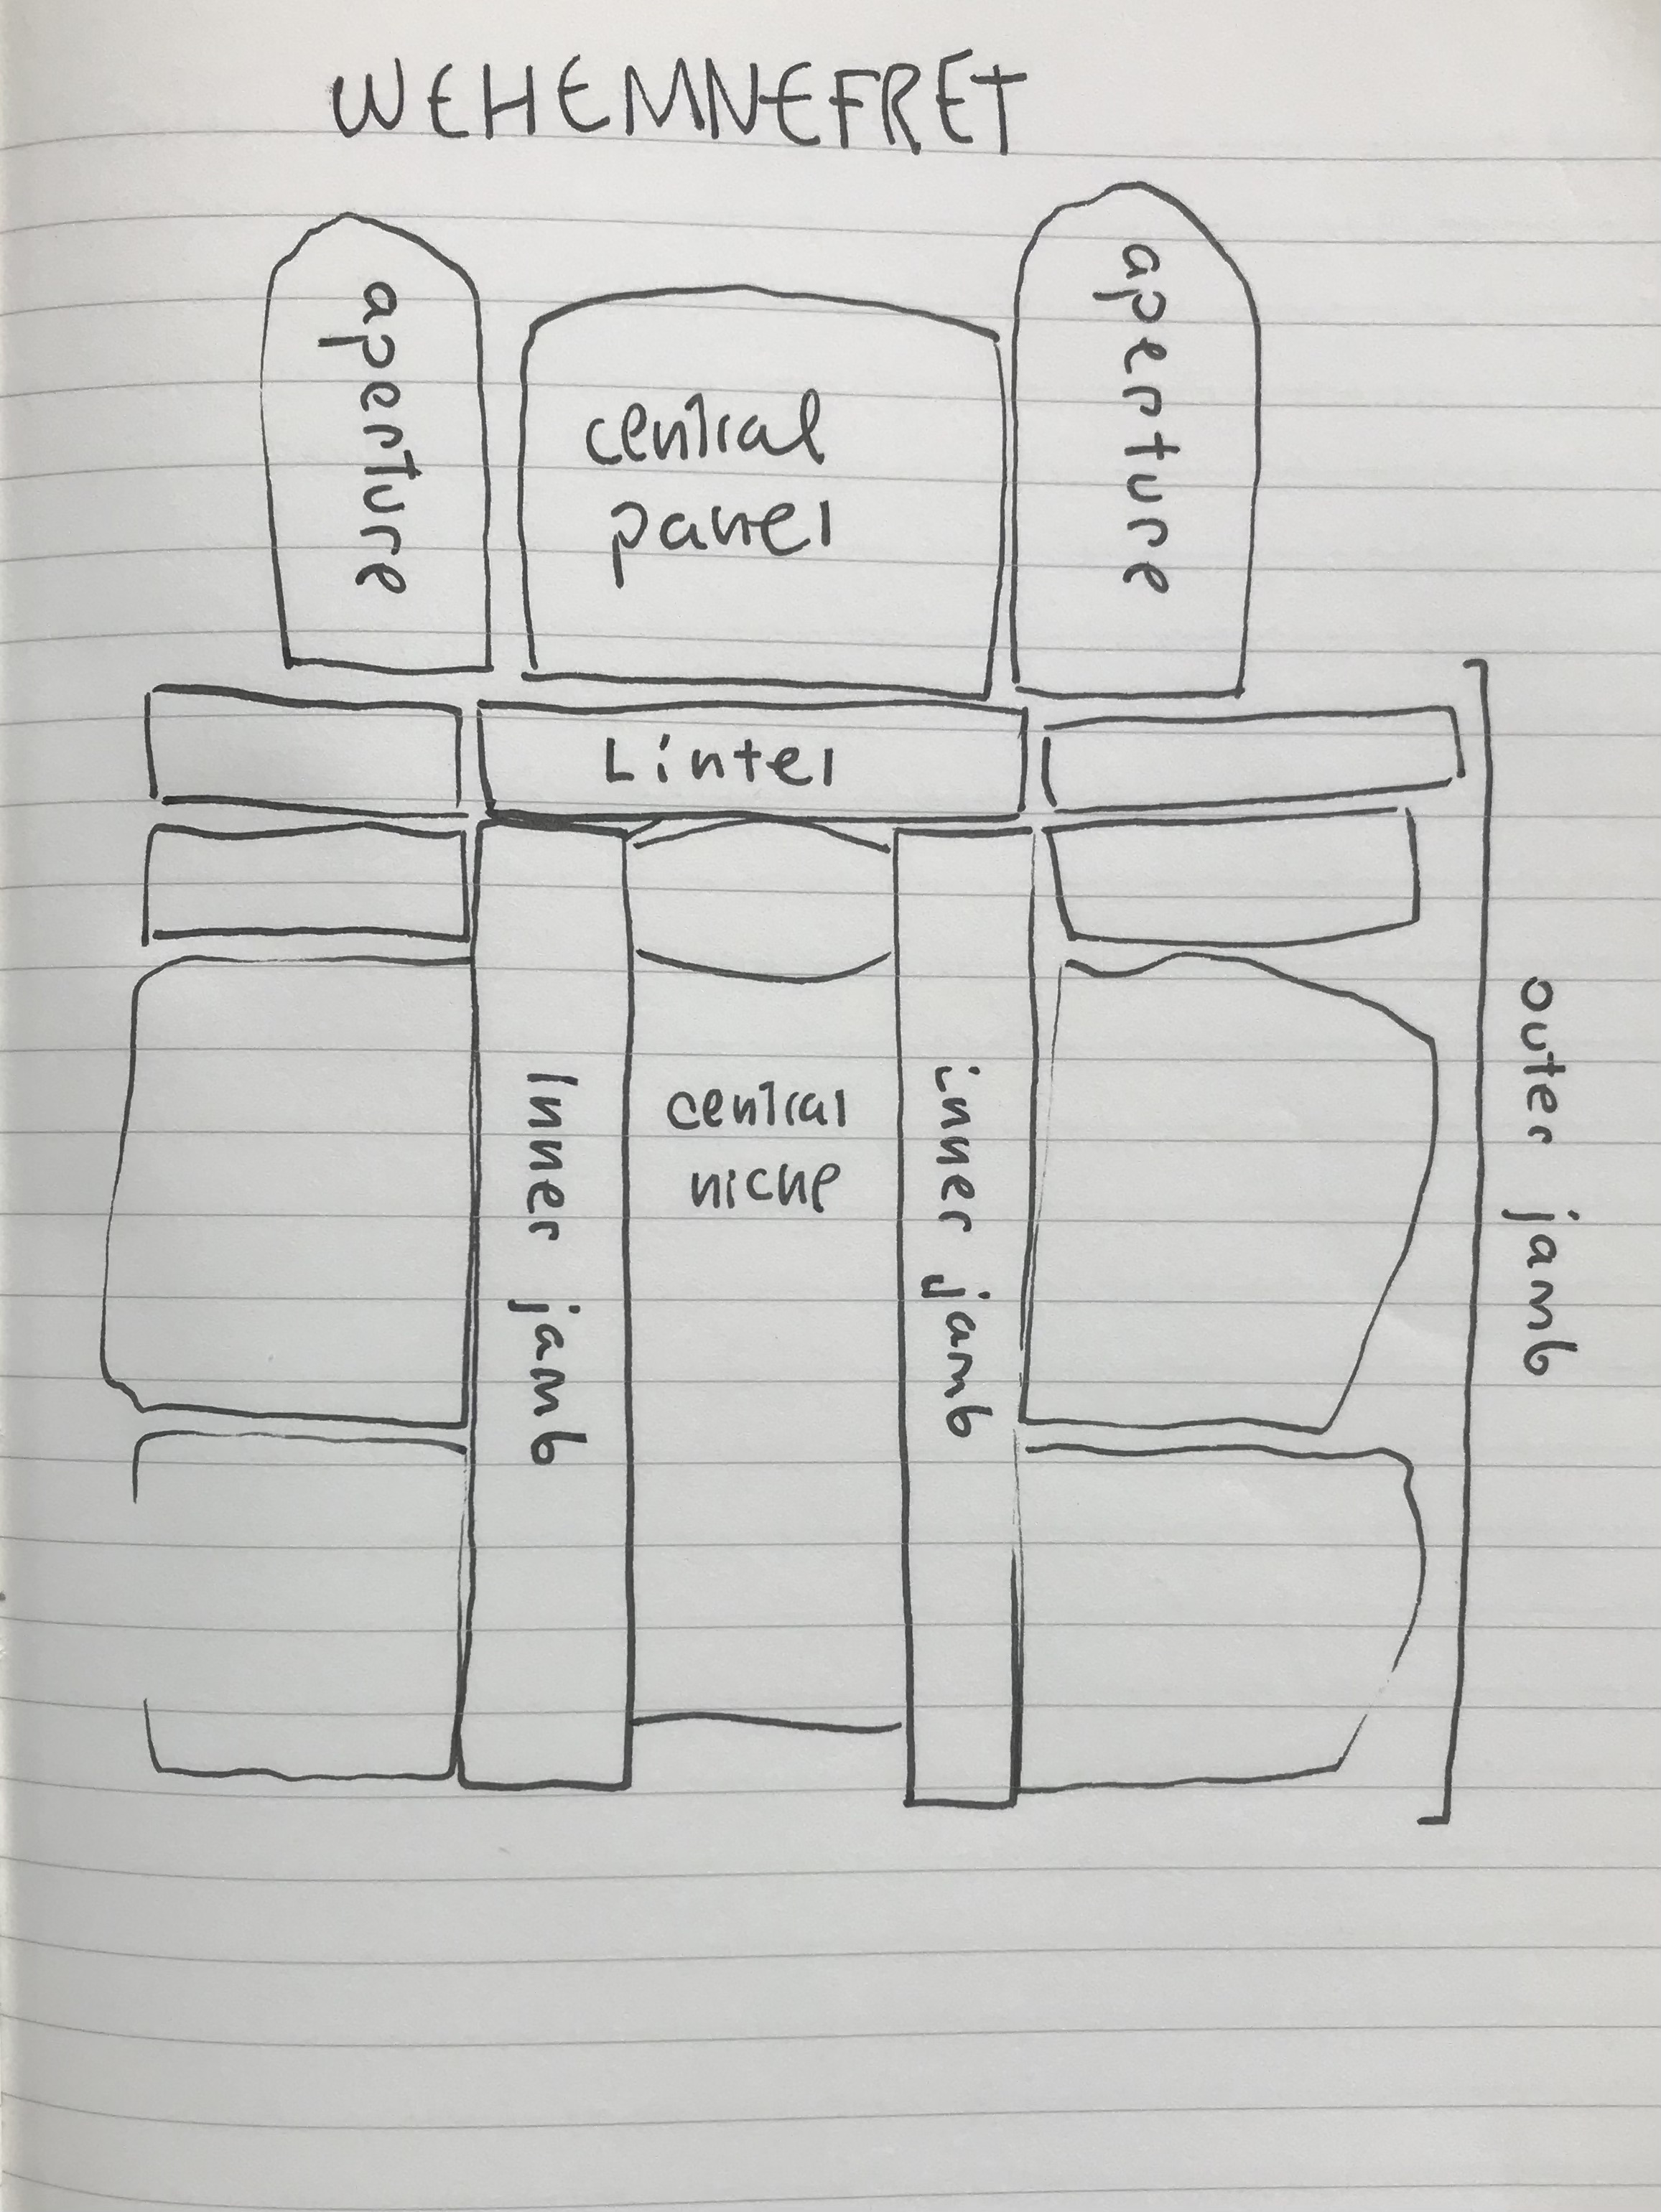 WEHEMNEFRET
aperture
central
panel
aperture
Lintel
Inner jamb
central
niche
inner jamb
outer jamb